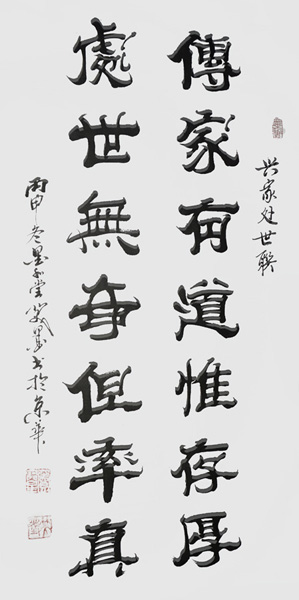 兴家处世联
傳家有道惟存厚
處世無奇但率真
丙申冬墨堂书於京華